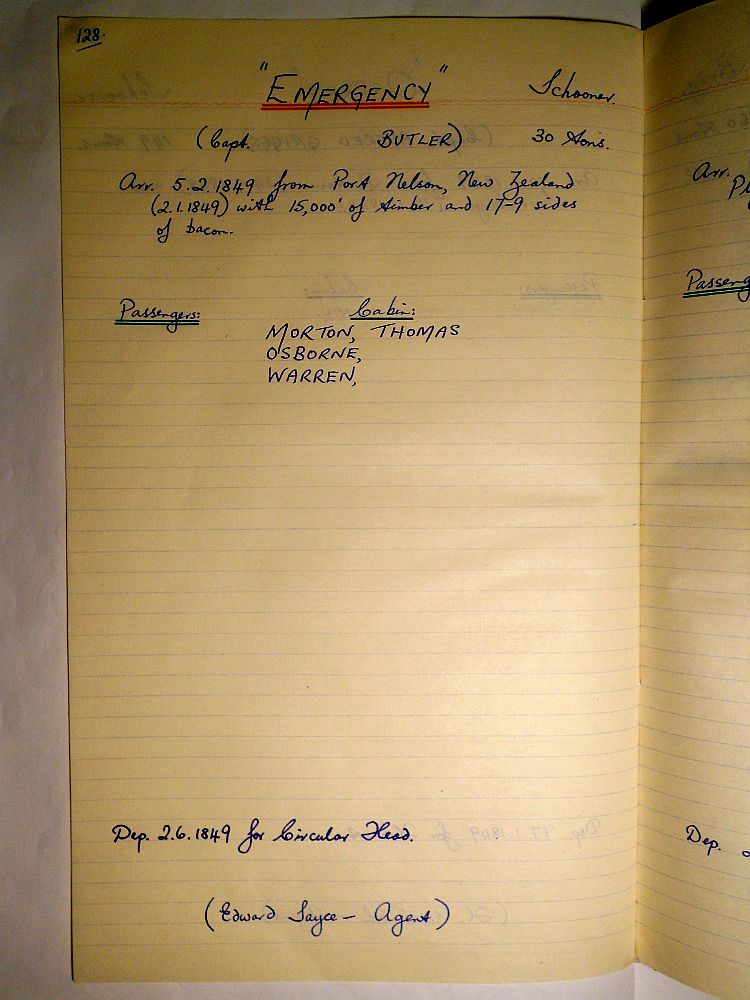 128.
"EMERGENCY" Schooner.
(Capt. BUTLER) 30 tons.
Arr. 5.2.1849 from Port Nelson, New Zealand
(2.1.1849) with 15,000' of timber and 17-9 sides
of bacon.
Passengers: Cabin:
MORTON, THOMAS
OSBORNE,
WARREN,
Dep. 2.6.1849 for Circular Head.
(Edward Sayce - Agent)
Arr.
Passeng
Dep.